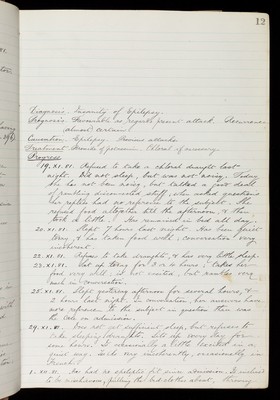 12
Diagnosis. Insanity of Epilepsy.
Prognosis. Favourable as regards present attack. Recurrence
almost certain.
Causation. Epilepsy. Previous attacks.
Treatment. Bromide of potassium. Chloral if necessary.
Progress
19.XI.01. Refused to take a chloral draught last
night. Did not sleep, but was not noisy. Today
she has not been noisy, but talked a good deal
of rambling disconnected stuff, when asked questions
her replies had no reference to the subject. She
refused food altogether till the afternoon, & then
took a little. Has remained in bed all day.
20.XI.01. Slept 7 hours last night. Has been quiet
today, & has taken food well, conversation very
incoherent.
22.XI.01. Refuses to take draughts, & has very little sleep.
23.XI.01. Got up today for 2 or 3 hours, takes her
food very well, is not excited, but rambles very
much in conversation.
25.XI.01. Slept yesterday afternoon for several hours, &
2 hours last night. In conversation, her answers have
more reference to the subject in question than was
the case on admission.
29.XI.01. Does not get sufficient sleep, but refuses to
take sleeping draughts. Gets up every day for
some hours. Is occasionally a little excited in a
quiet way. Talks very incoherently, occasionally in
French.
1.XII.01. Has had no epileptic fit since admission. Is inclined
to be mischievous, pulling the bed clothes about, throwing